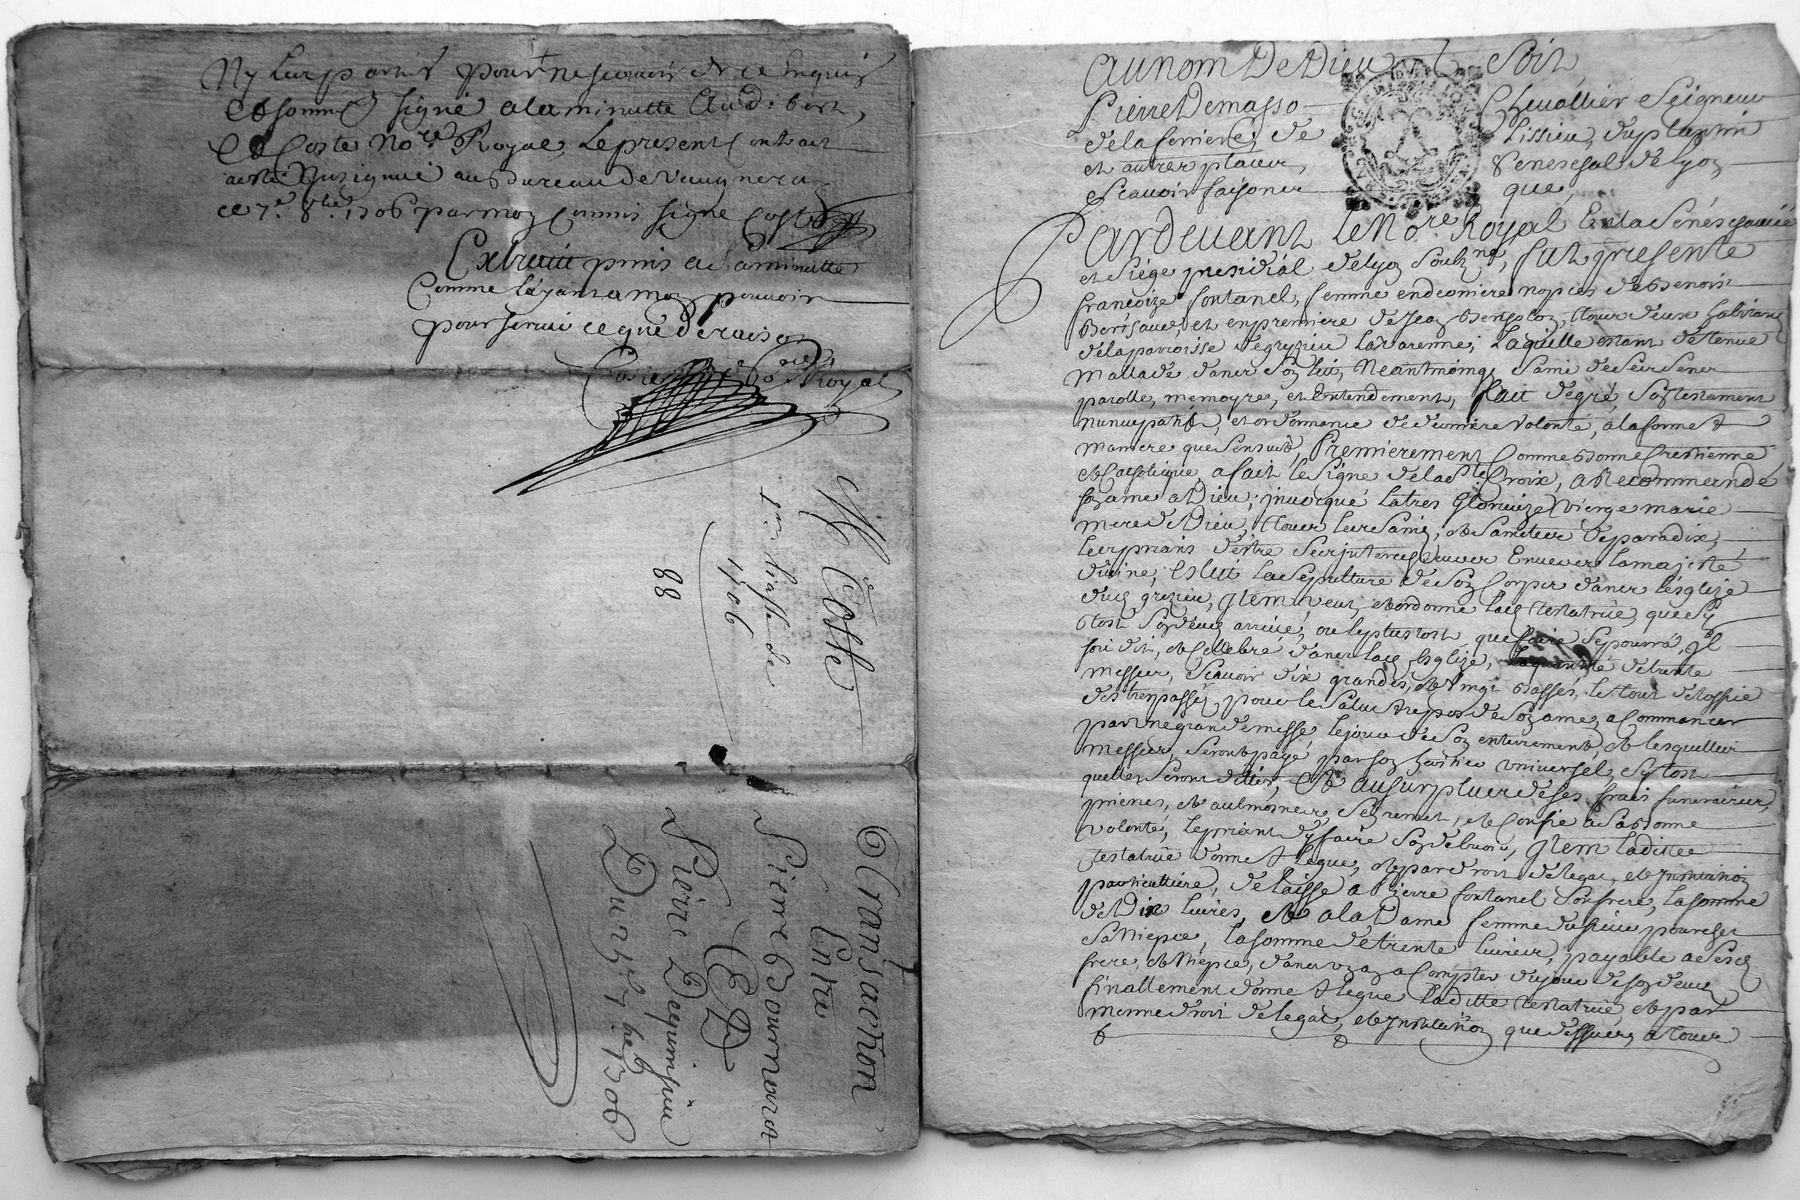 Ny les parties pour ne scavoir de ce enquis
et sommé signé a la minutte Audebert,
Et Coste Nore Royal, Le present Contract
a esté Insignué au Bureau de Vaugneray
ce 7e 8bre 1706 par moy Commis signé Coste
Extraict pris a sa minutte
Comme l'ayant a mon pouvoir
pour servir ce que de raison
Coste Nore Royal
Me Coste
en liasse de
1706
88
Transaction
Entre
Pierre Bournarot
ET
Pierre Dequinsieu
Du 25e 7bre 1706
Au nom De Dieu Soit
Pierre Demasso Chevallier Seigneur
de la ferriere, de Lissieu, du plantin
et autres places, Seneschal de lyon
Scavoir faisons que,
Pardevant le Nore Royal En la Sénéschaucée
et Siége presidial de lyon Soubzné, fut presente
françoize fontanel, femme en dernieres nopces de Benoist
de la parroisse de grizieu la varenne; Laquelle estant detenue
Mallade dans son lit, Neantmoings Saine de ses Sens
parolle, memoyre, et Entendement, fait de gré, Son testament
nuncupatif, et ordonnance de derniere volonté, a la forme &
maniere que s'ensuit, Premierement Comme bonne Crestienne
et Catolique, a fait le Signe de la Ste Croix, a Recommandé
son ame a Dieu; invocqué la tres Glorieuze Vierge marie
mere de Dieu, tous les Saints, et Saintes de paradix,
les priants d'être ses intercesseurs Envers la majesté
divine, Eslit la Sépulture de Son Corps dans l'ésglize
dud grezieu, Item veut, et ordonne lad testatrice, que Sy
tost Son décés arrivé, ou le plustost que faire Se pourra, Il
soit dit, et Cellebré dans lad Esglize, la quantité de trente
messes, Scavoir dix grandes, et Vingt Basses, le tout de l'office
des trespassés, pour le Salut & repos de Son ame, a Commancer
par une grande messe le jour de Son enterrement, et lesquelles
messes, Seront payé par son héritier universel, Sy tost
quelles Seront dittes, Et au Surplus de ses frais funeraires,
prieres, et aulmosnes, Se remet, et Confie a Sa bonne
volonté, le priant d'y faire Son debvoir, Item laditte
testatrice donne & legue, et par droit de legat, et Institution
particulliere, delaisse a Pierre fontanel Son frere, la somme
de Dix livres, et a la Dame femme
Sa Niepce, la somme de trente livres, payable a Sesd
frere, et Niepce, dans un an a Compter du jour de son deces
finallement donne & legue laditte testatrice et par
mesme droit de legat, et Institution que dessus, a tous